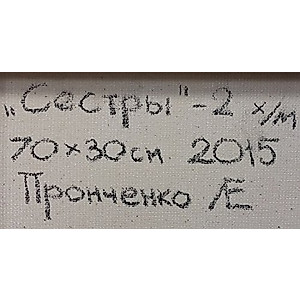 „Сестры"-2 х/м
70×30см 2015
Пронченко Æ